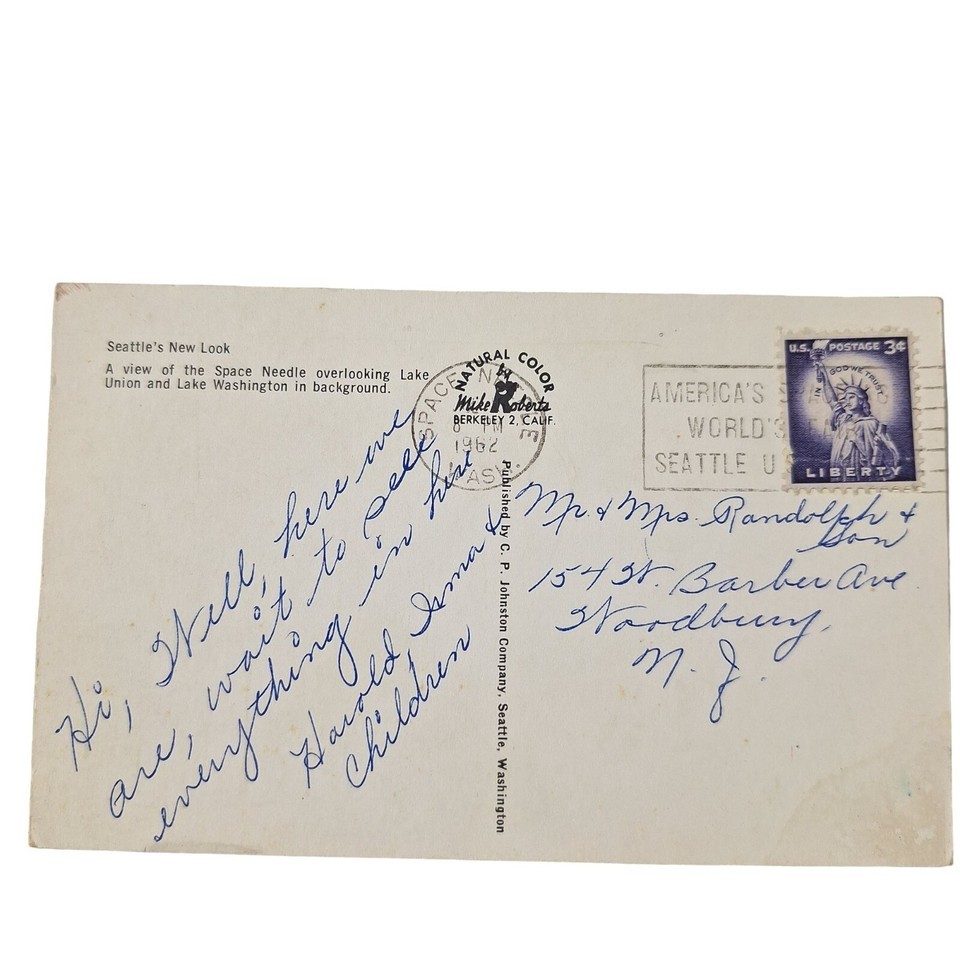 Seattle's New Look
A view of the Space Needle overlooking Lake
Union and Lake Washington in background.
NATURAL COLOR
Mike Roberts
BERKELEY 2, CALIF.
SPACE NEEDLE
PM
1962
WASH.
AMERICA'S
WORLD'S
SEATTLE U
U.S. POSTAGE 3¢
IN GOD WE TRUST
LIBERTY
Hi, Well, here we
are, wait to see
everything in here
Harold Isma &
Children
Published by C. P. Johnston Company, Seattle, Washington
Mr. & Mrs. Randolph &
Son
154 W. Barber Ave.
Woodbury,
N. J.